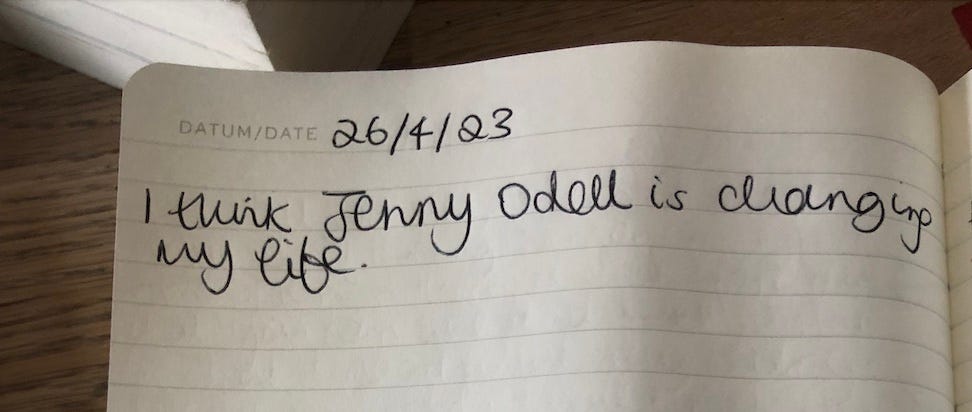 DATUM/DATE 26/4/23
I think Jenny Odell is changing
my life.